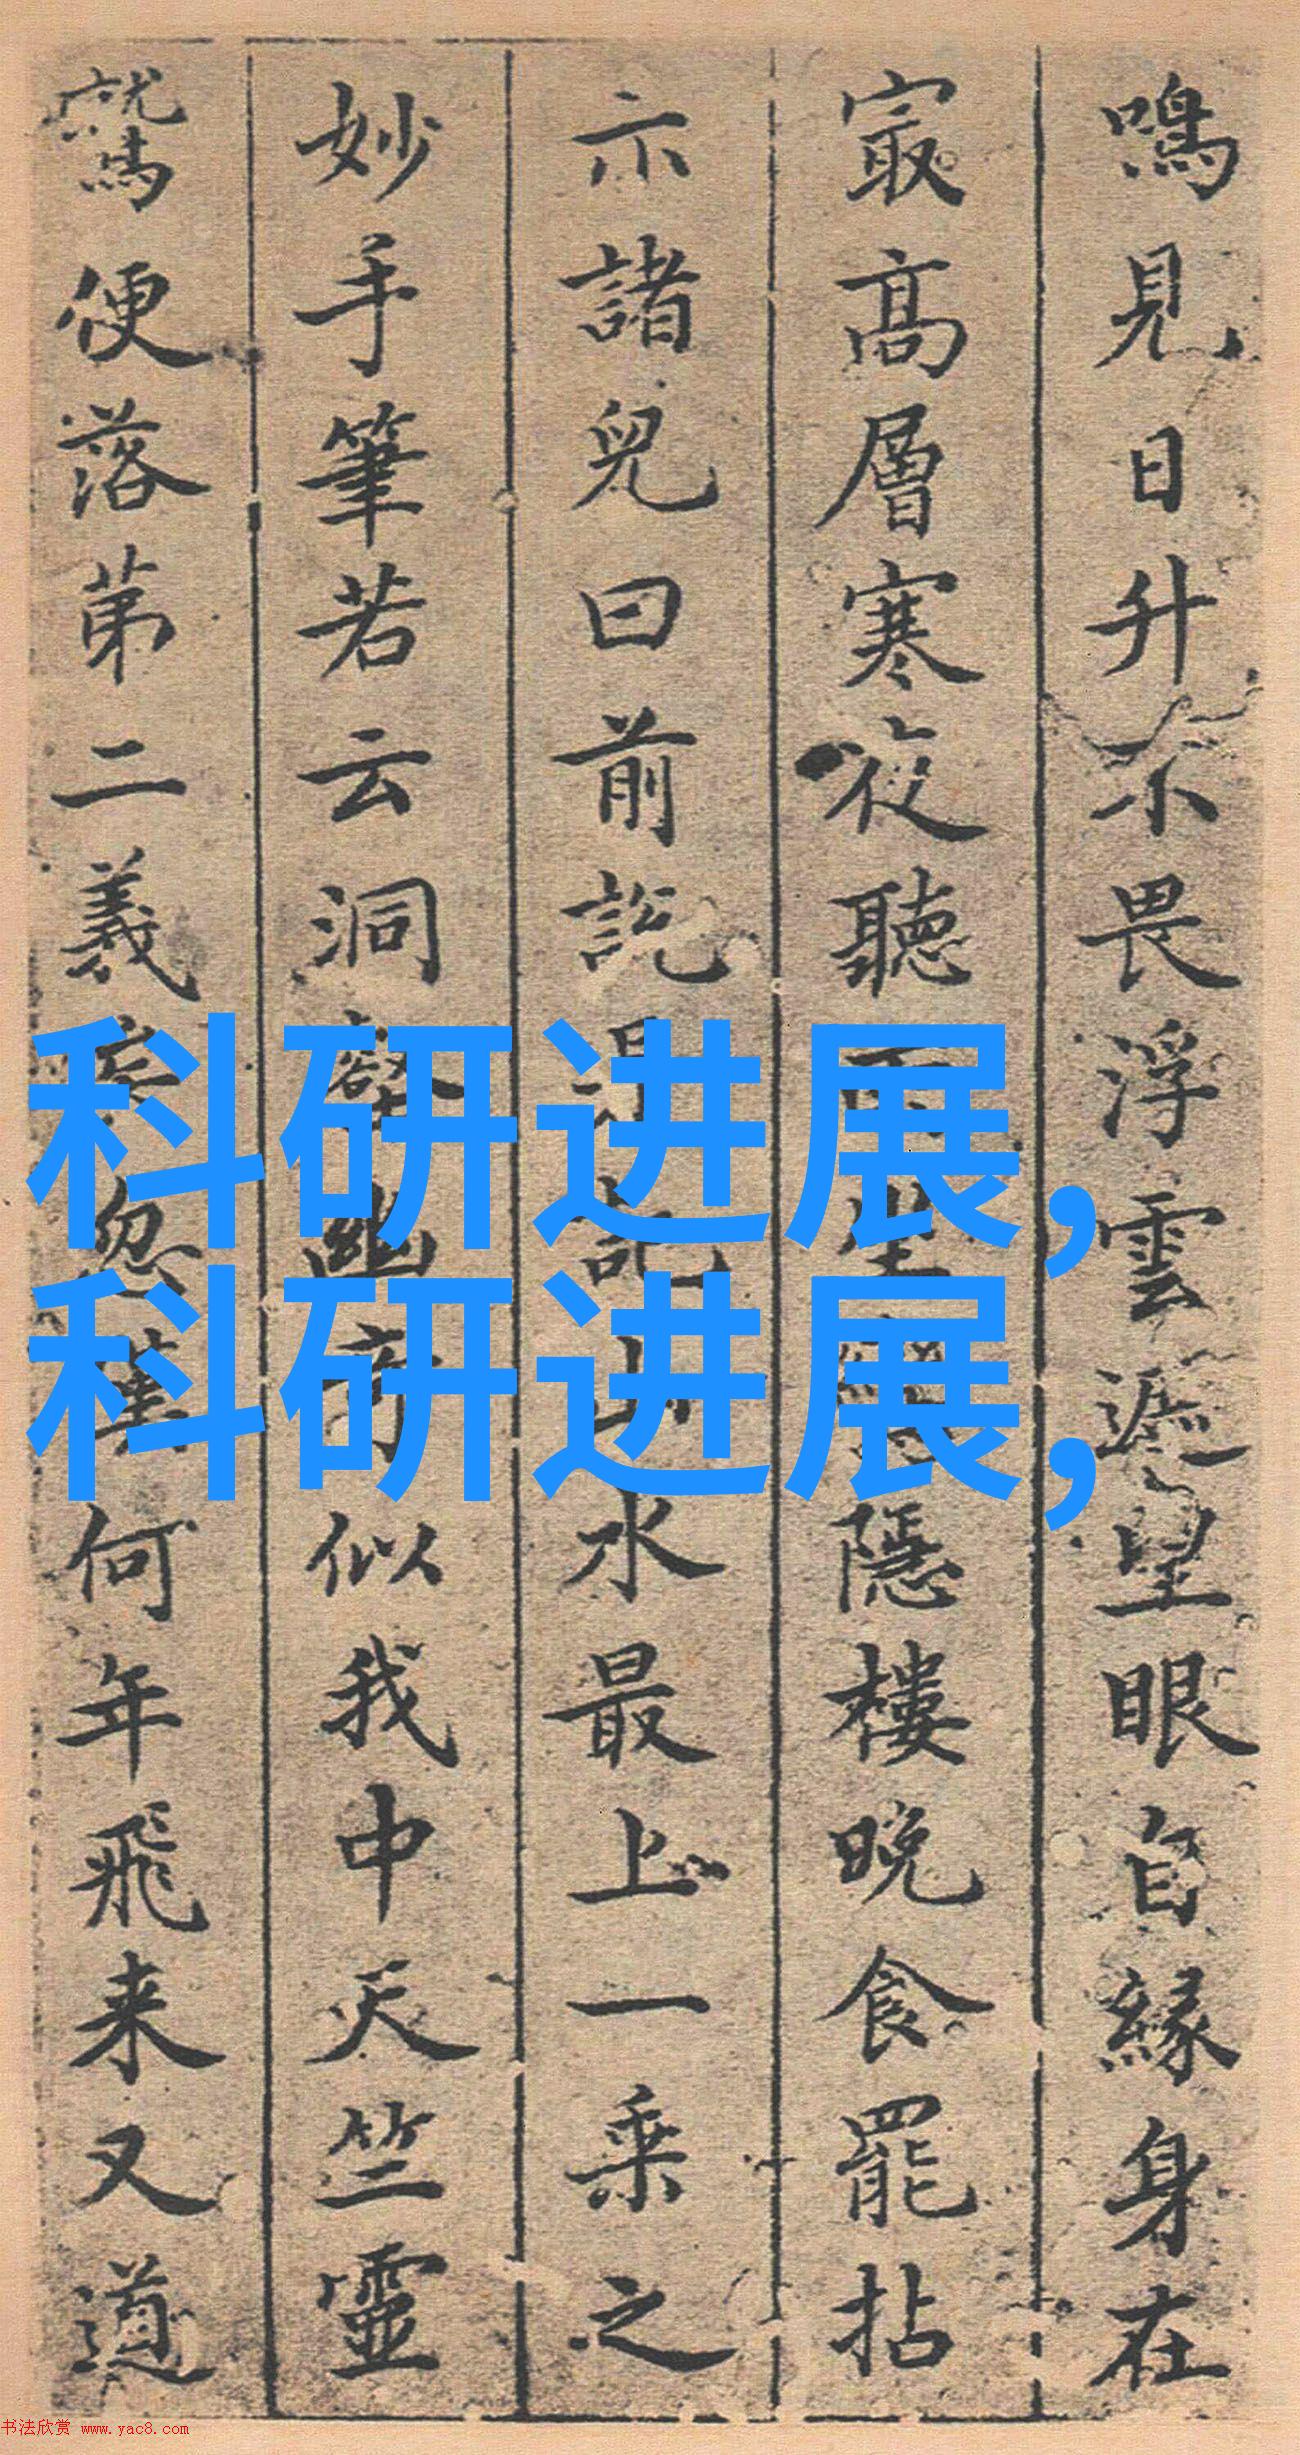 鳴見日升不畏浮雲遮望眼自緣身在
最高層寒夜聽隱樓晚食罷拈
示諸兒曰前説水最上一乘之
妙手筆若云洞似我中天竺靈
鷲便落苐二義忽何年飛来又道
科研进展,
科研进展,
书法欣赏 www.yac8.com